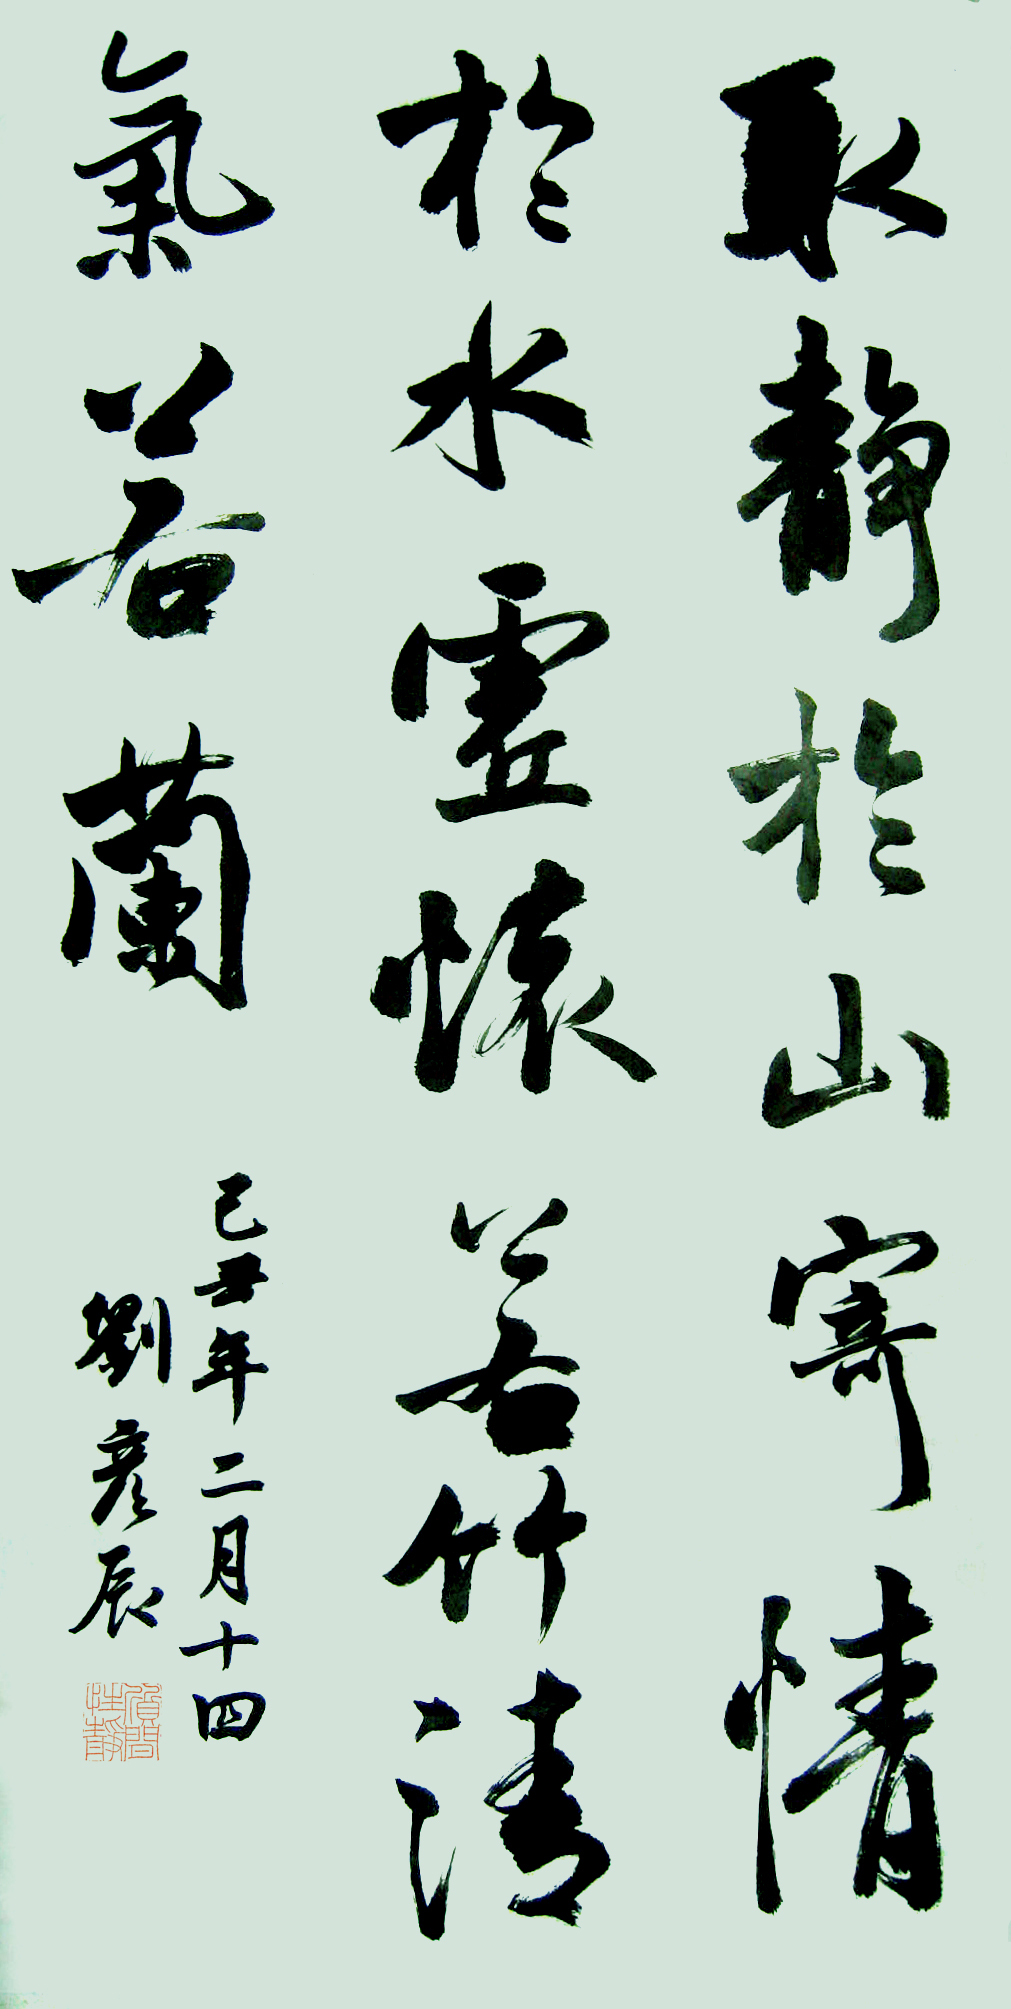 取靜於山寄情
於水虛懷若竹清
氣若蘭
己丑年二月十四
劉彥辰